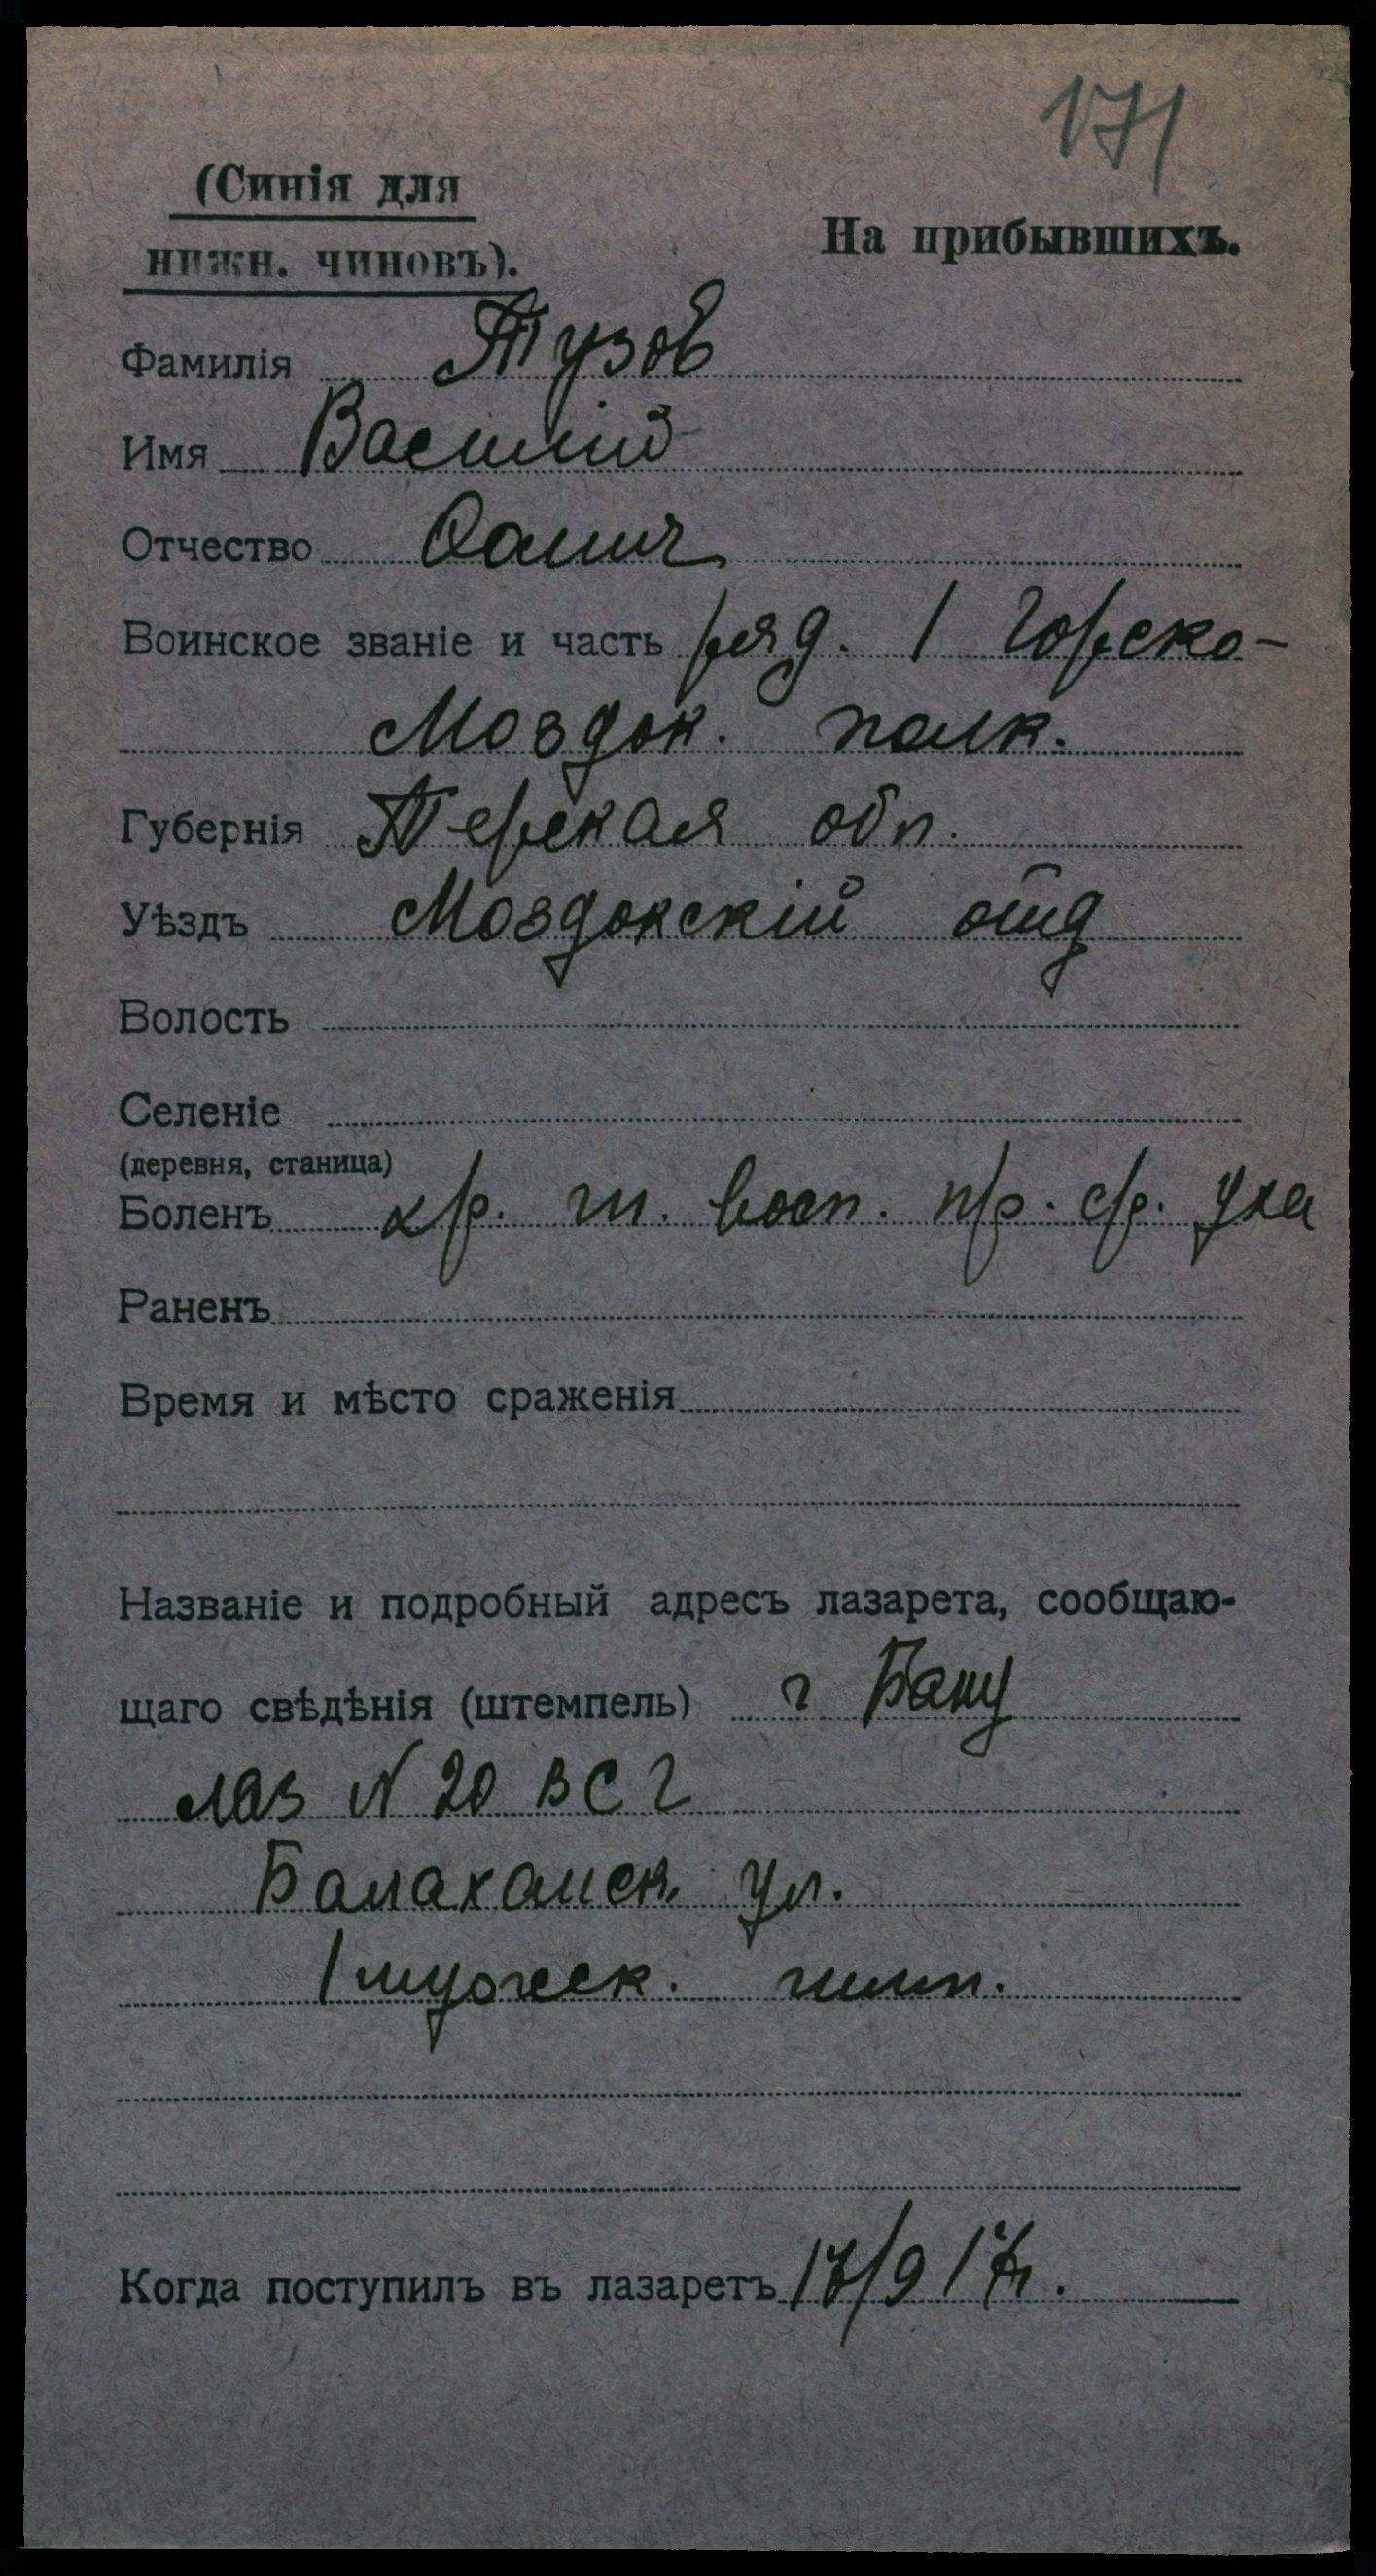 171
(Синія для
нижн. чиновъ).
На прибывшихъ.
Фамилія Тузов
Имя Василій
Отчество
Воинское званіе и часть ряд. 1 Горско-
Моздок. полк.
Губернія Терская обл.
Уѣздъ Моздокскій отд
Волость
Селеніе
(деревня, станица)
Боленъ хр. гн. восп. пр. ср. уха
Раненъ
Время и мѣсто сраженія
Названіе и подробный адресъ лазарета, сообщаю-
щаго свѣдѣнія (штемпель) г Баку
лаз N 20 В С Г
Балаханск. ул.
1 мужеск. гимн.
Когда поступилъ въ лазаретъ 17/9 17 г.